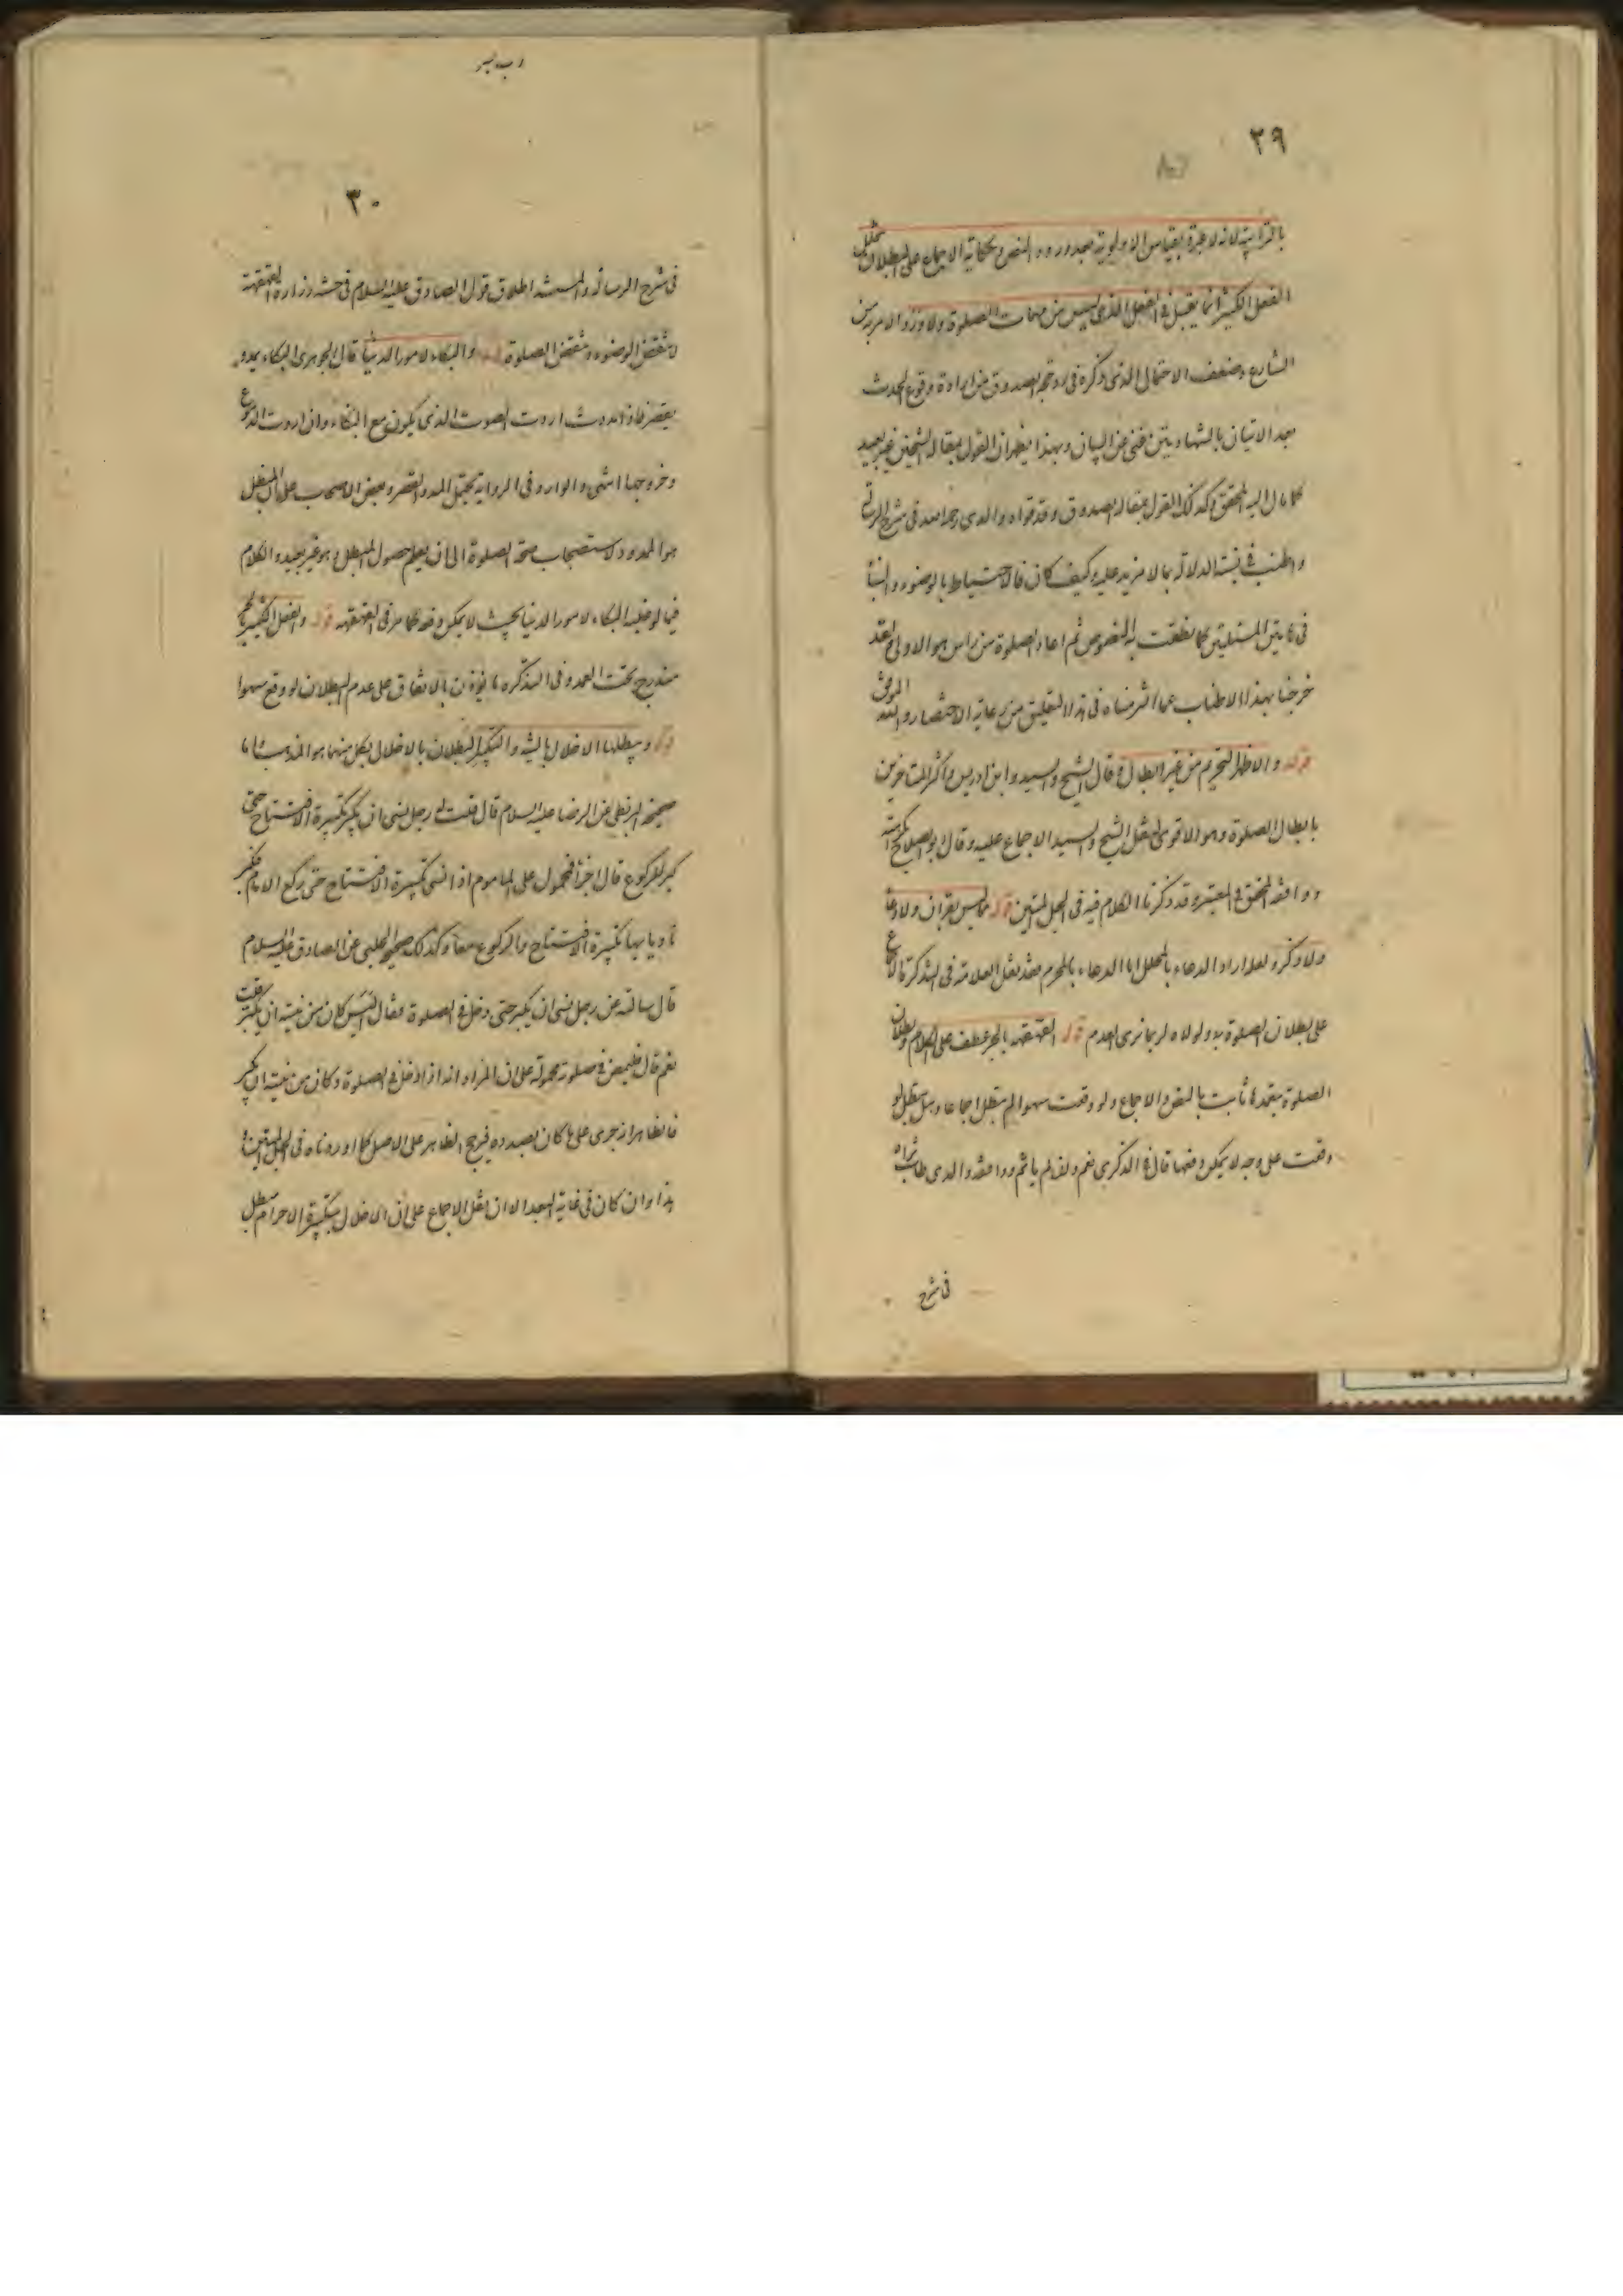 ٢٩
بالترابية لانه لا عبرة بقياس الاولوية بعد ورود النص وحكاية الاجماع على البطلان بتخلل
الفعل الكثير انما يقبل في الفعل الذي ليس من مهمات الصلوة ولا ورد الامر به من
الشارع وضعف الاحتمال الذي ذكره في من ارادة وقوع الحدث
بعد الاتيان بالشهادتين غني عن البيان وبهذا يظهر ان القول بمقالة الشيخين غير بعيد
كما مال اليه المحقق وكذلك القول بمقالة الصدوق وقد قواه والدي رحمه الله في شرح الرسالة
واطنب في الدلالة بما لا مزيد عليه وكيف كان فالاحتياط بالوضوء والبناء
في هاتين المسئلتين كما نطقت به النصوص ثم اعادة الصلوة من راس هو الاولى وقد
خرجنا بهذا الاطناب عما التزمناه في هذا التعليق من رعاية الاختصار والله الموفق
قوله والاظهر التحريم من غير ابطال قال الشيخ والسيد وابن ادريس واكثر المتاخرين
بابطال الصلوة وهو الاقوى لنقل الشيخ والسيد الاجماع عليه وقال ابو الصلاح بكراهته
ووافقه المحقق في المعتبر وقد ذكرنا الكلام فيه في الحبل المتين قوله مما ليس بقران ولا دعا
ولا ذكر لعله اراد الدعاء بالمحلل اما الدعاء بالمحرم فقد نقل العلامة في التذكرة الاجماع
على بطلان الصلوة به ولولاه لربما نرى العدم قوله القهقهه بالجر عطف على الكلام وبطلان
الصلوة بتعمدها ثابت بالنص والاجماع ولو وقعت سهوا لم تبطل اجماعا وهل تبطل لو
وقعت على وجه لا يمكن دفعها قال في الذكرى نعم وان لم ياثم ووافقه والدي طاب ثراه
في شرح
٣٠
في شرح الرسالة والمستند اطلاق قول الصادق عليه السلام في حسنة زرارة القهقهة
لا تنقض الوضوء وتنقض الصلوة قوله والبكاء لامور الدنيا قال الجوهري البكاء يمد و
يقصر فاذا مددت اردت الصوت الذي يكون مع البكاء وان اردت الدموع
وخروجها انتهى والوارد في الرواية يحتمل المد والقصر وبعض الاصحاب على ان المبطل
هو الممدود لاستصحاب صحة الصلوة الى ان يعلم حصول المبطل وهو غير بعيد والكلام
فيما لو غلبه البكاء لامور الدنيا بحيث لا يمكن دفعه كما مر في القهقهه قوله والفعل الكثير
مندرج تحت العمد وفي التذكرة بالاتفاق على عدم البطلان لو وقع سهوا
قوله ويبطلها الاخلال بالنية والتكبير البطلان بالاخلال بكل منهما هو المذهب واما
صحيحة البزنطي عن الرضا عليه السلام قال قلت له رجل نسي ان يكبر تكبيرة الافتتاح حتى
كبر للركوع قال اجزأه فمحمول على الماموم اذا نسي تكبيرة الافتتاح حتى ركع الامام فكبر
ناويا بها تكبيرة الافتتاح والركوع معا وكذلك صحيح الحلبي عن الصادق عليه السلام
قال سالته عن رجل نسي ان يكبر حتى دخل في الصلوة فقال اليس كان من نيته ان يكبر قلت
نعم قال فليمض في صلوته محمولة على ان المراد انه اذا دخل في الصلوة وكان من نيته ان يكبر
فالظاهر انه جرى على ما كان بصدده فيرجح الظاهر على الاصل كما اوردناه في الحبل المتين
هذا وان كان في غاية البعد الا ان نقل الاجماع على ان الاخلال بتكبيرة الاحرام مبطل